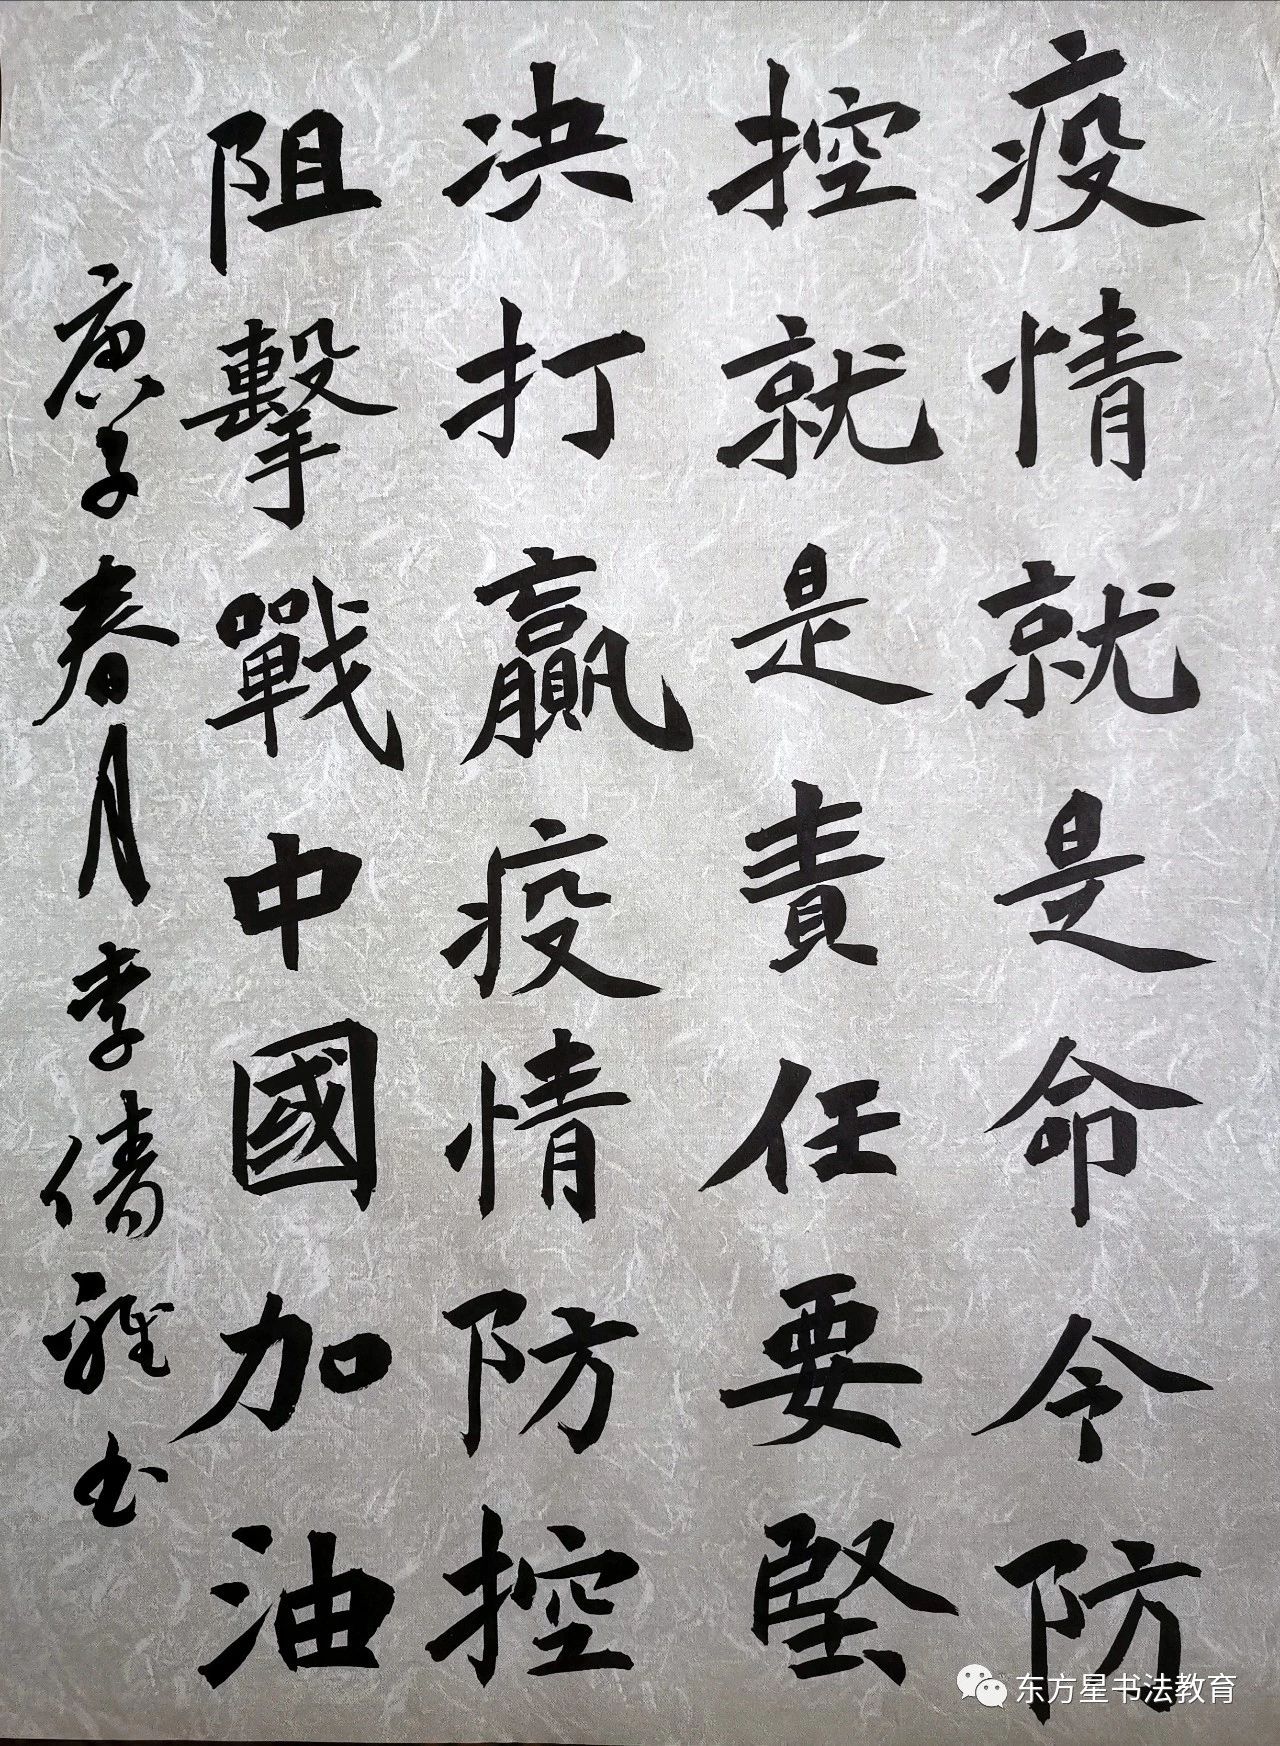 疫情就是命令防
控就是責任要堅
决打贏疫情防控
阻擊戰中國加油
庚子春月李倩雅书
东方星书法教育